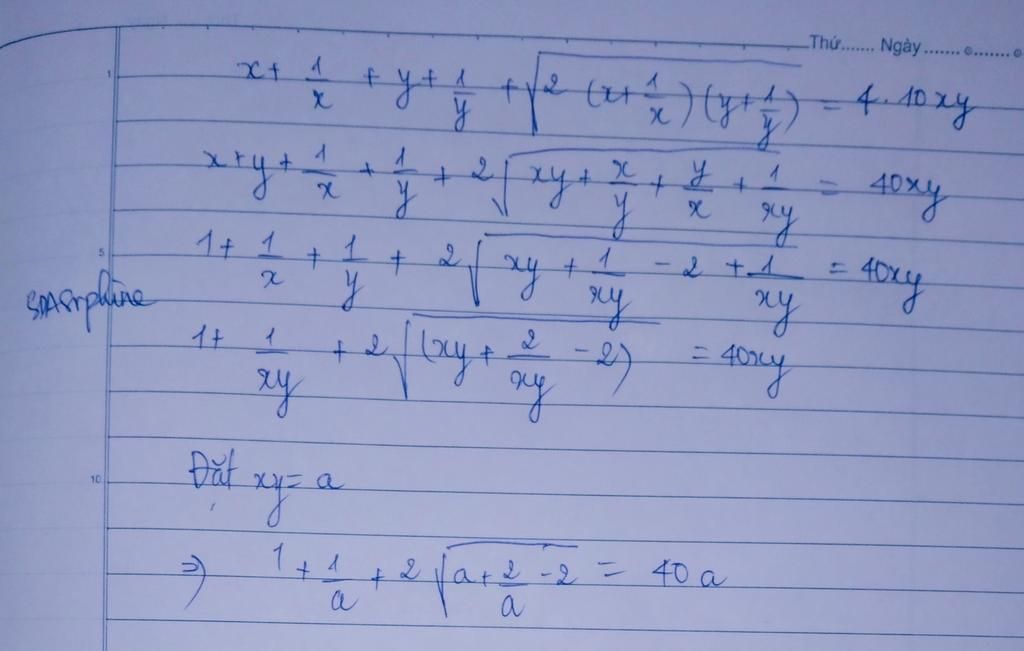 Thứ....... Ngày.......
1
x + 1/x + y + 1/y + √(2 (x + 1/x)(y + 1/y)) = 4.10xy
x + y + 1/x + 1/y + 2√(xy + x/y + y/x + 1/xy) = 40xy
5
1 + 1/x + 1/y + 2√(xy + 1/xy - 2 + 1/xy) = 40xy
1 + 1/xy + 2√((xy + 2/xy - 2)) = 40xy
10
Đặt xy = a
⇒ 1 + 1/a + 2√(a + 2/a - 2) = 40a